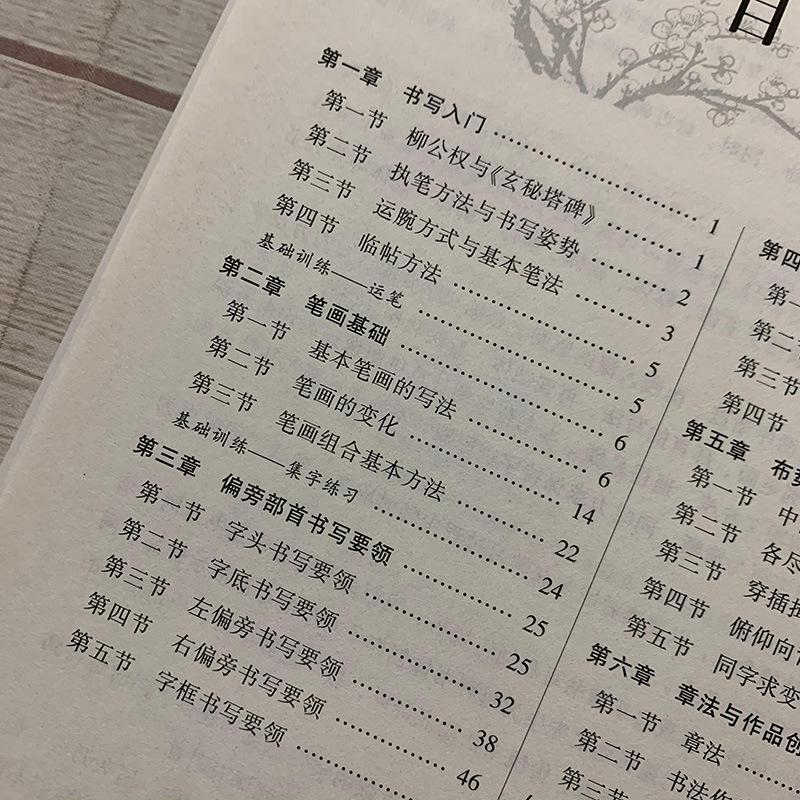 目
第一章 书写入门 …… 1
第一节 柳公权与《玄秘塔碑》 …… 1
第二节 执笔方法与书写姿势 …… 2
第三节 运腕方式与基本笔法 …… 3
第四节 临帖方法 …… 5
基础训练——运笔 …… 5
第二章 笔画基础 …… 6
第一节 基本笔画的写法 …… 6
第二节 笔画的变化 …… 14
第三节 笔画组合基本方法 …… 22
基础训练——集字练习 …… 24
第三章 偏旁部首书写要领 …… 25
第一节 字头书写要领 …… 25
第二节 字底书写要领 …… 32
第三节 左偏旁书写要领 …… 38
第四节 右偏旁书写要领 …… 46
第五节 字框书写要领 ……
第四
第一
第二
第三节
第四节
第五章 布
第一节 中
第二节 各尽
第三节 穿插
第四节 俯仰向
第五节 同字求变
第六章 章法与作品创
第一节 章法 ……
第二节 书法作
第三节